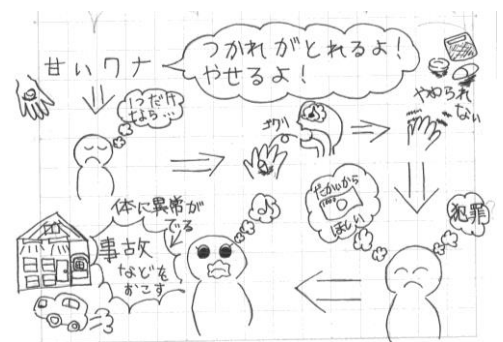 甘いワナ
つかれがとれるよ!
やせるよ!
1つだけ
なら…
ゴクリ
やめられ
ない
犯罪
だかいから
ほしい
体に異常が
でる
事故
などを
おこす